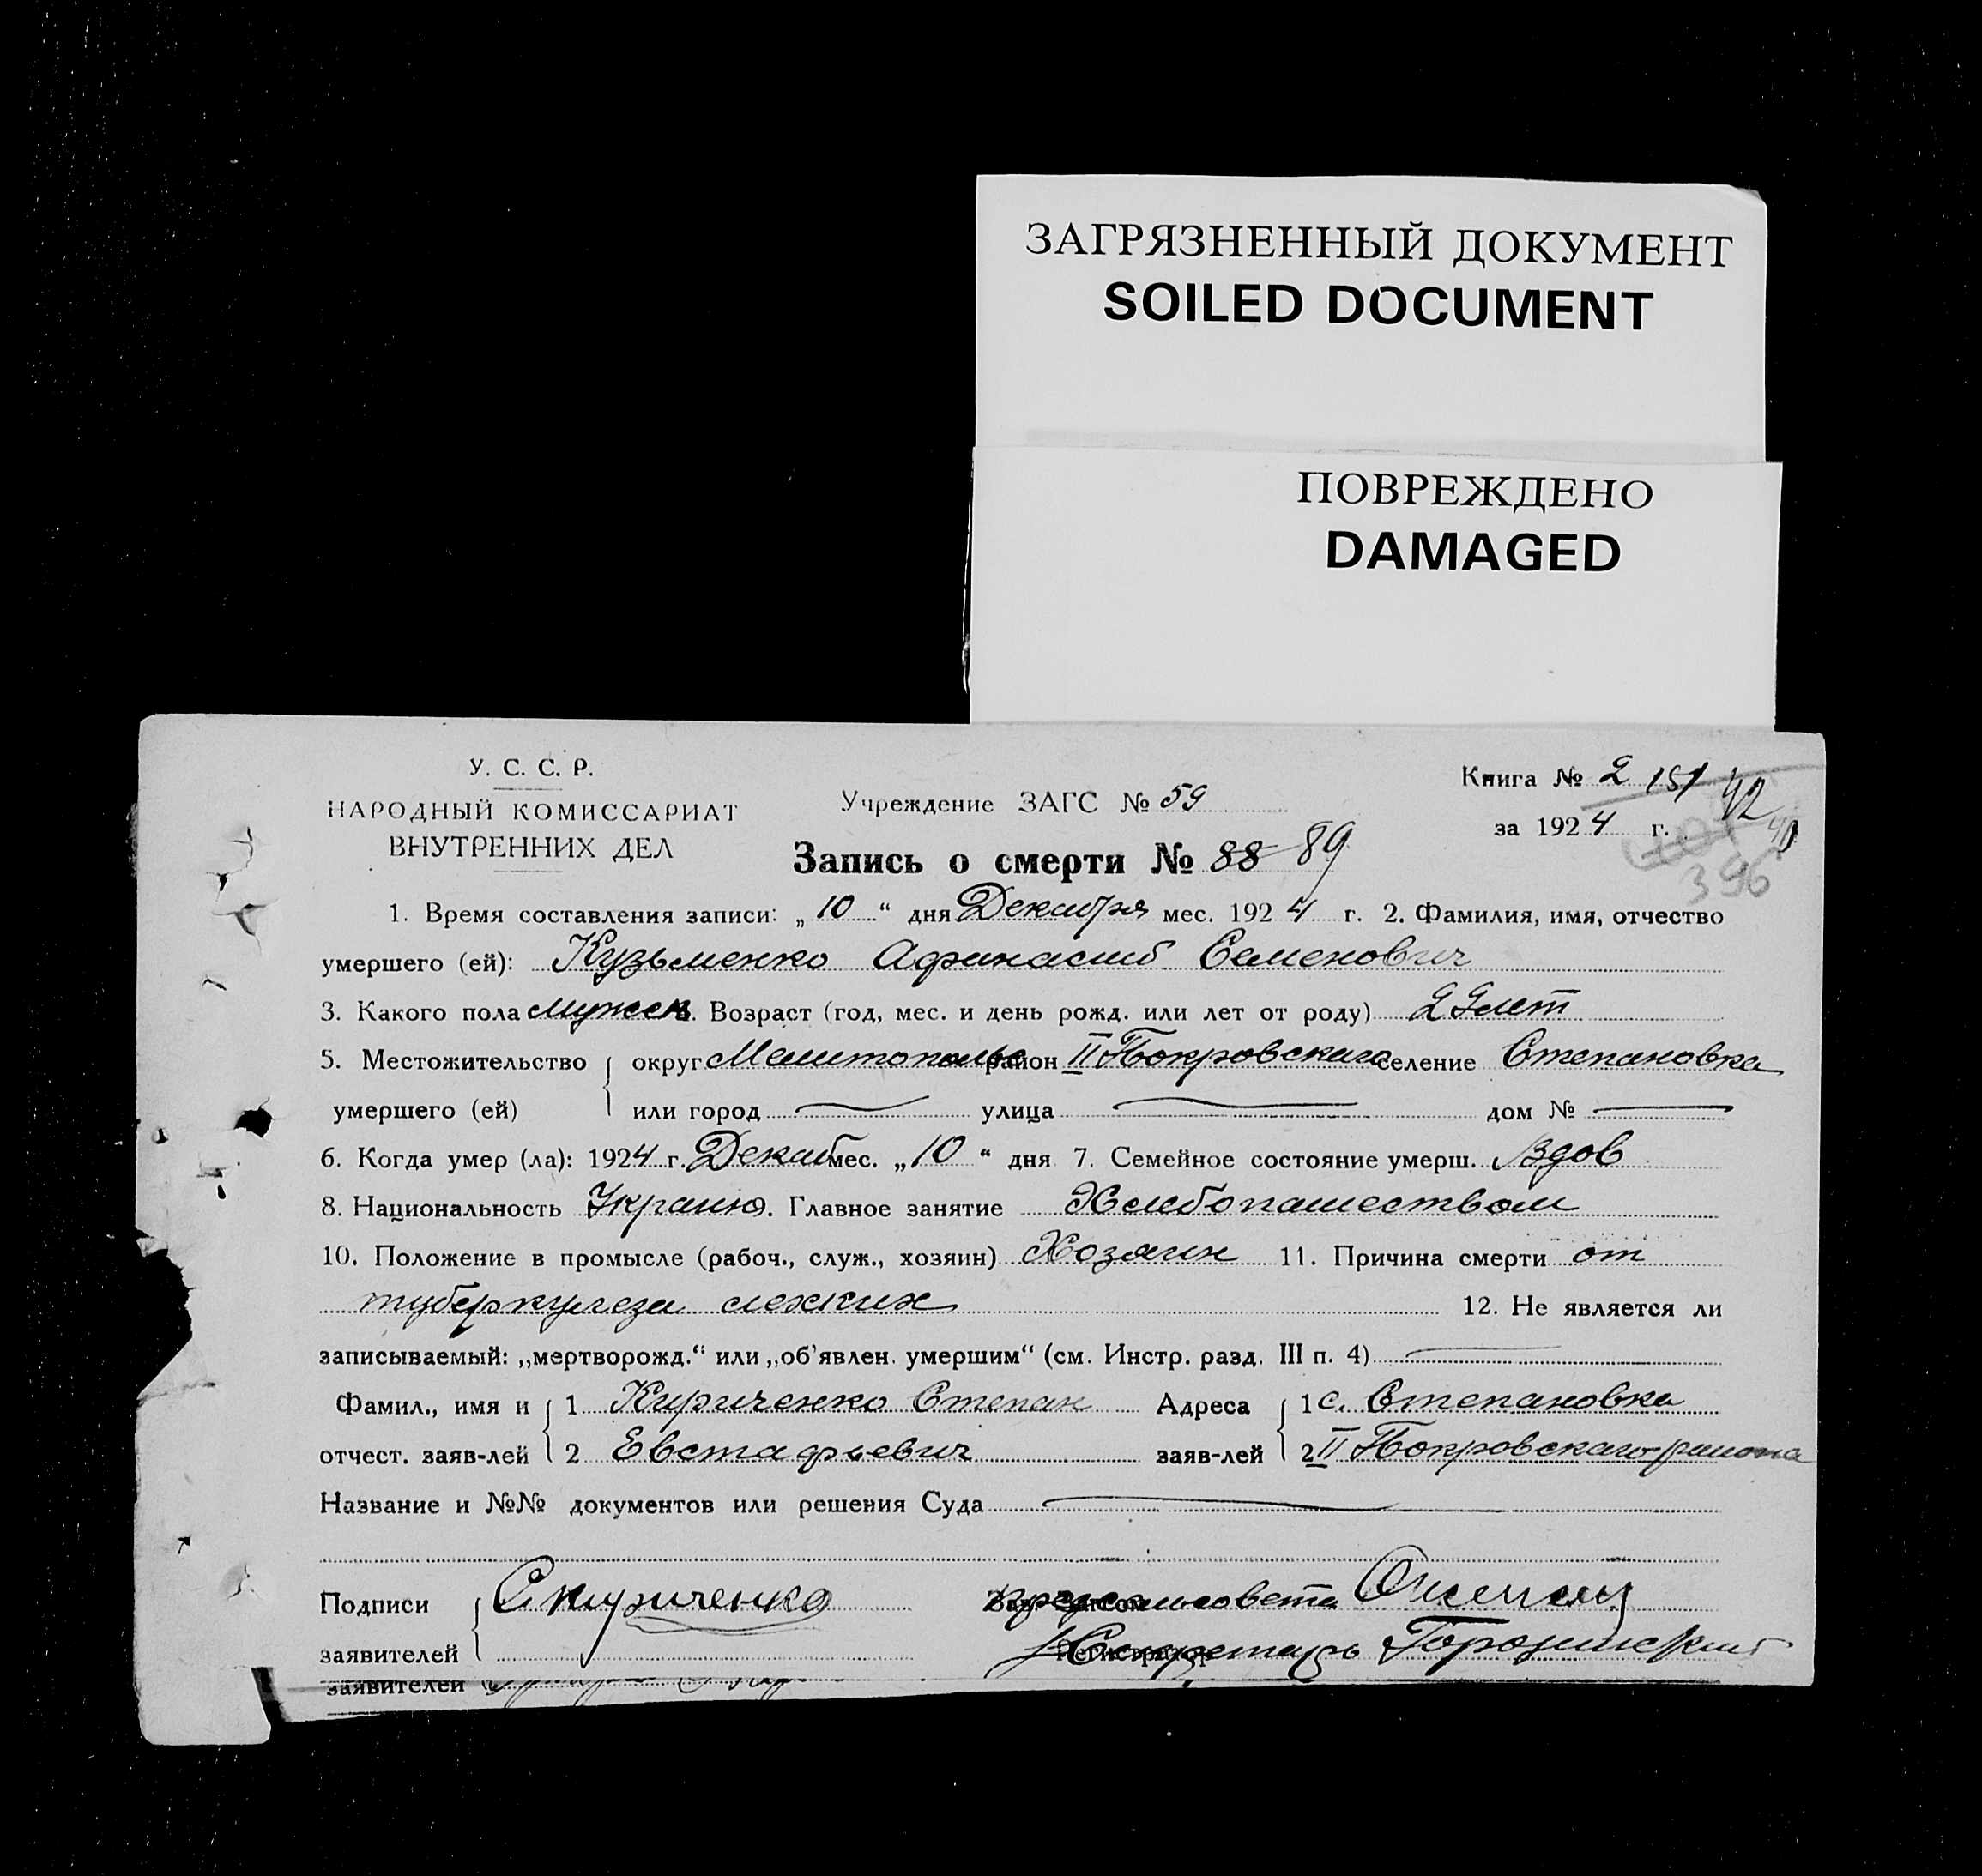 ЗАГРЯЗНЕННЫЙ ДОКУМЕНТ
SOILED DOCUMENT
ПОВРЕЖДЕНО
DAMAGED
У. С. С. Р.
НАРОДНЫЙ КОМИССАРИАТ
ВНУТРЕННИХ ДЕЛ
Учреждение ЗАГС № 59
Книга № 2 151 42
за 1924 г.
396
Запись о смерти № 88 89
1. Время составления записи: „10“ дня Декабря мес. 1924 г. 2. Фамилия, имя, отчество
умершего (ей): Кузьменко Афанасий Семенович
3. Какого пола мужск. Возраст (год, мес. и день рожд. или лет от роду) 29 лет
5. Местожительство округ Мелитополь район II Покровскаго селение Степановка
умершего (ей) или город улица дом №
6. Когда умер (ла): 1924 г. Декаб мес. „10“ дня 7. Семейное состояние умерш. Вдов
8. Национальность Украин. Главное занятие Хлебопашеством
10. Положение в промысле (рабоч., служ., хозяин) Хозяин 11. Причина смерти от
туберкулеза легких 12. Не является ли
записываемый: „мертворожд.“ или „об’явлен. умершим“ (см. Инстр. разд. III п. 4)
Фамил., имя и 1 Кириченко Степан Адреса 1 с. Степановка
отчест. заяв-лей 2 Евстафьевич заяв-лей 2 II Покровскаго района
Название и №№ документов или решения Суда
Подписи С Кириченко предсельсовета
заявителей Секретарь
заявителей